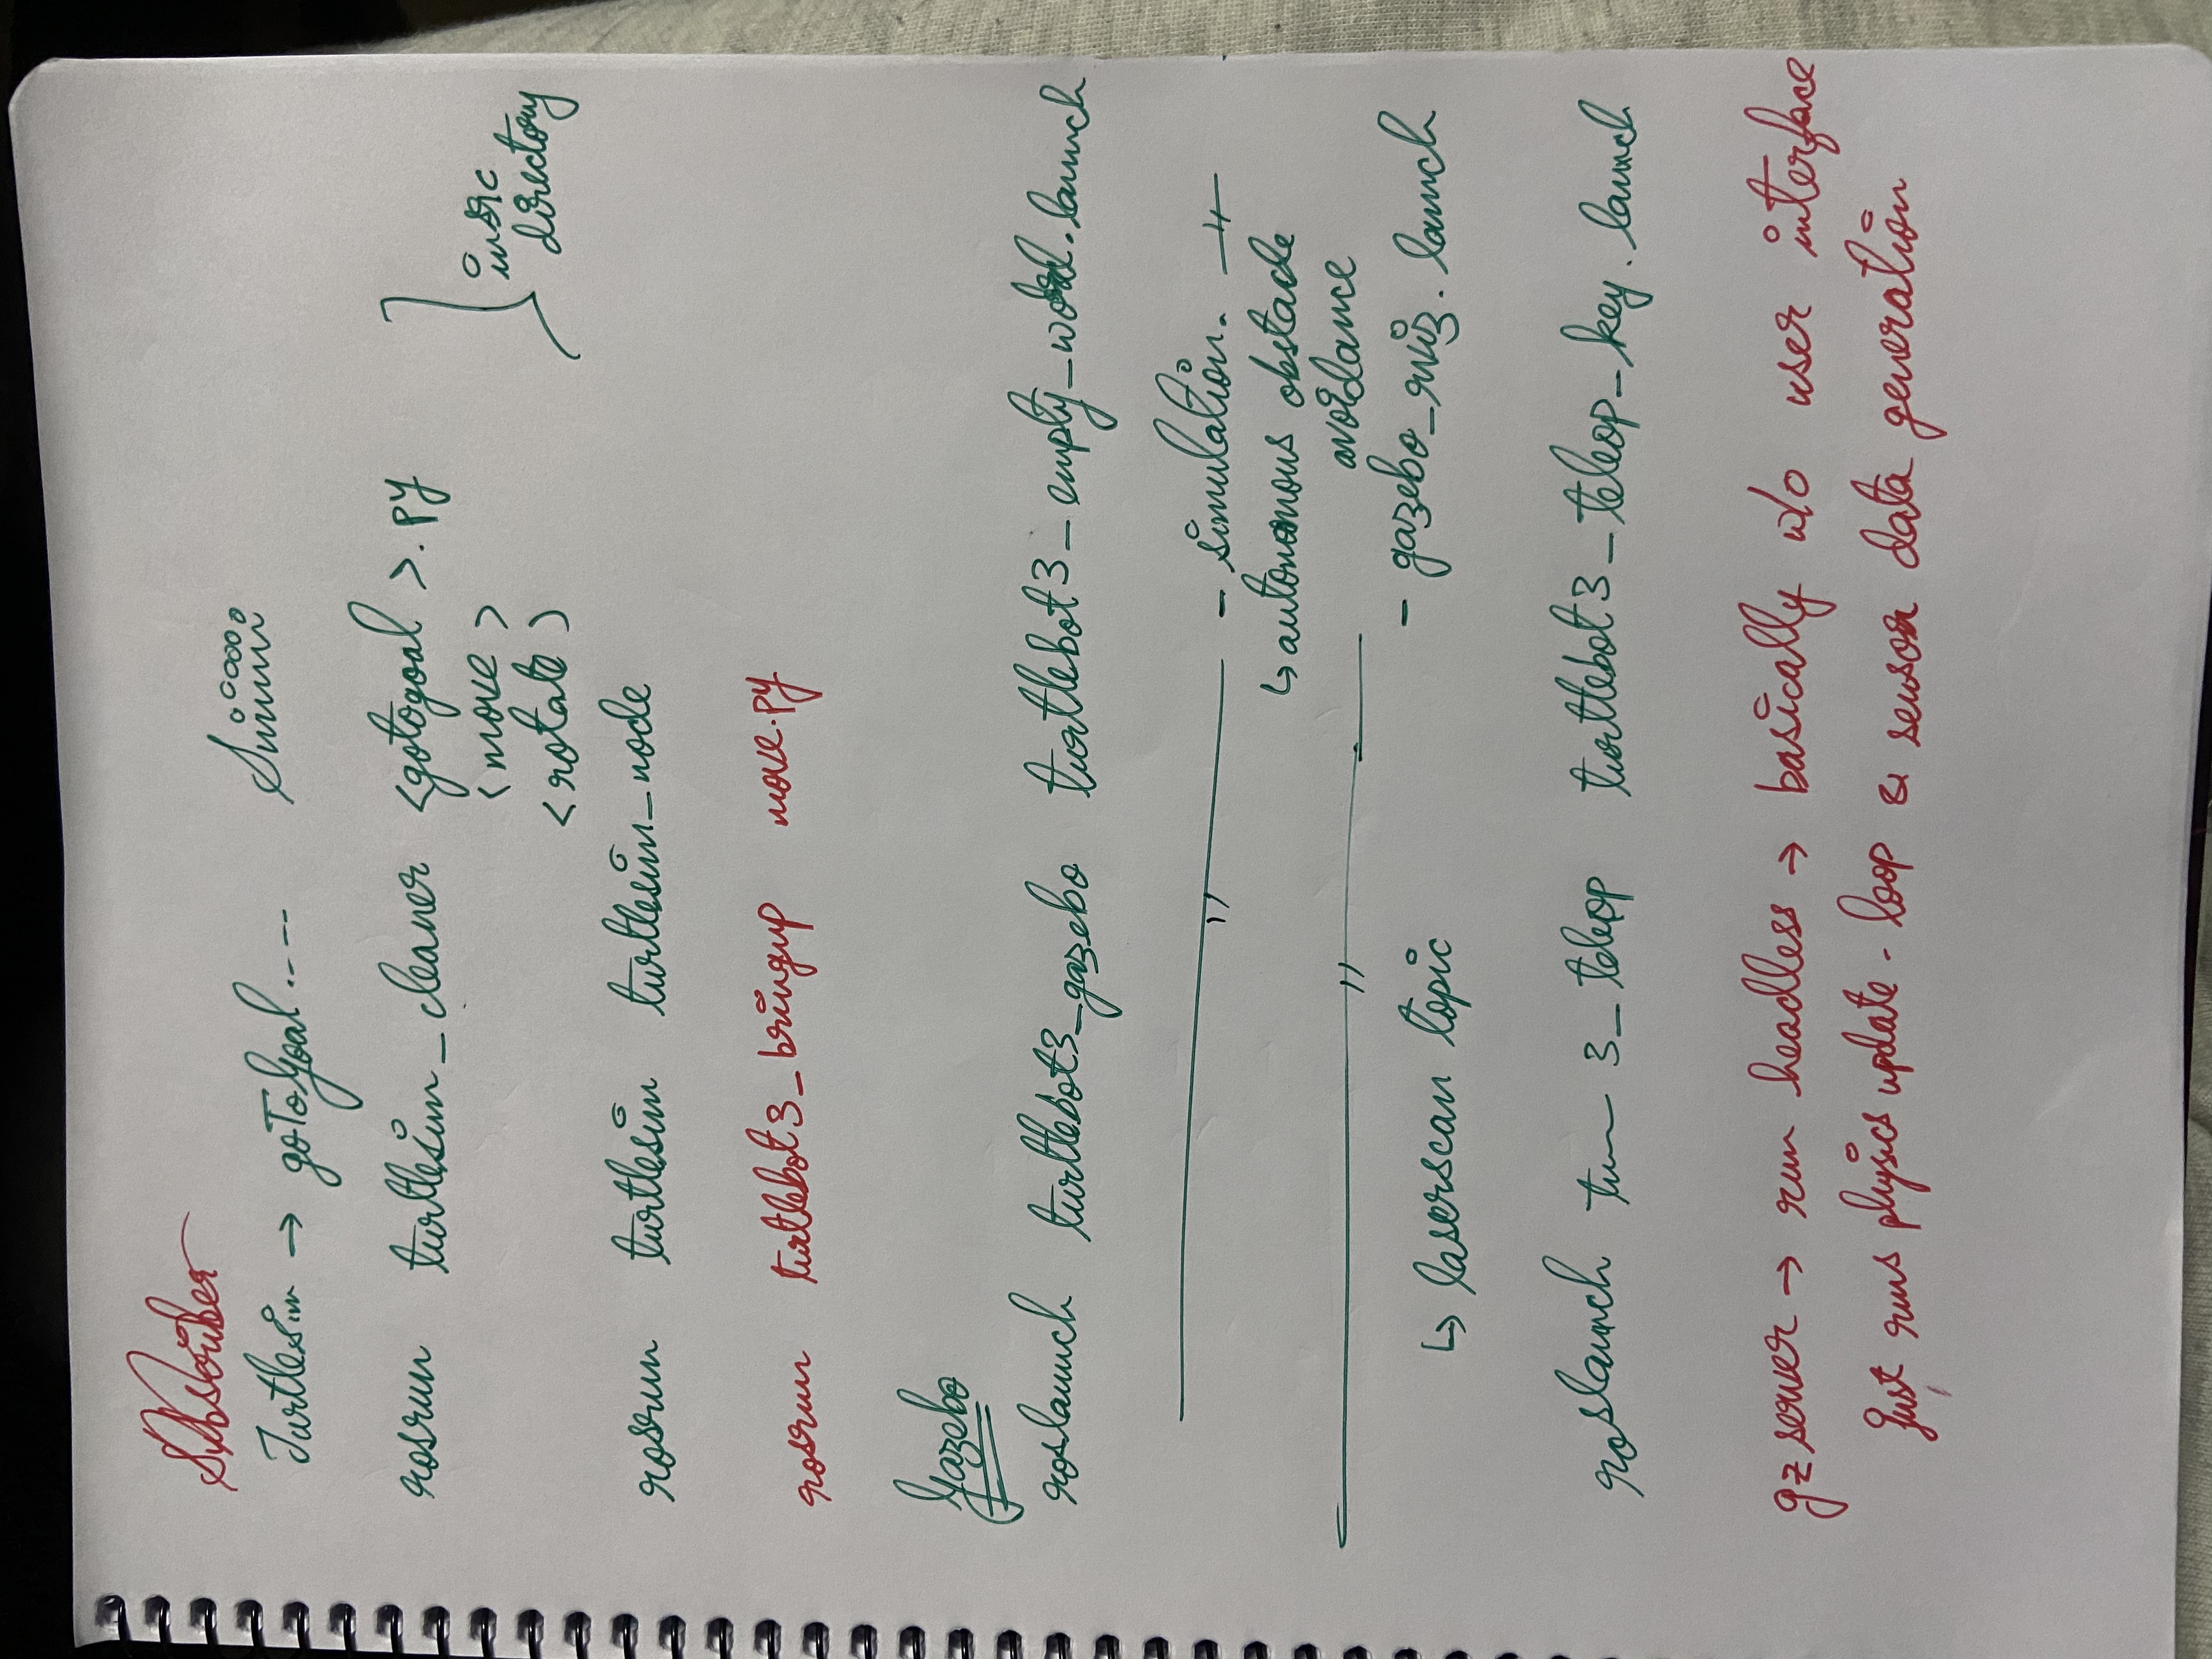 Subscriber
Turtlesim → goToGoal ---- Siiiiii
rosrun turtlesim_cleaner <gotogoal>.py
<move>
<rotate>
in src
directory
rosrun turtlesim turtlesim_node
rosrun turtlebot3_bringup move.py
Gazebo
roslaunch turtlebot3_gazebo turtlebot3_empty_world.launch
—— " —— - simulation. —"—
↳ autonomous obstacle
avoidance
—— " —— - gazebo_rviz.launch
↳ laserscan topic
roslaunch tu— 3_teleop turtlebot3_teleop_key.launch
gzserver → run headless → basically w/o user interface
Just runs physics update-loop & sensor data generation